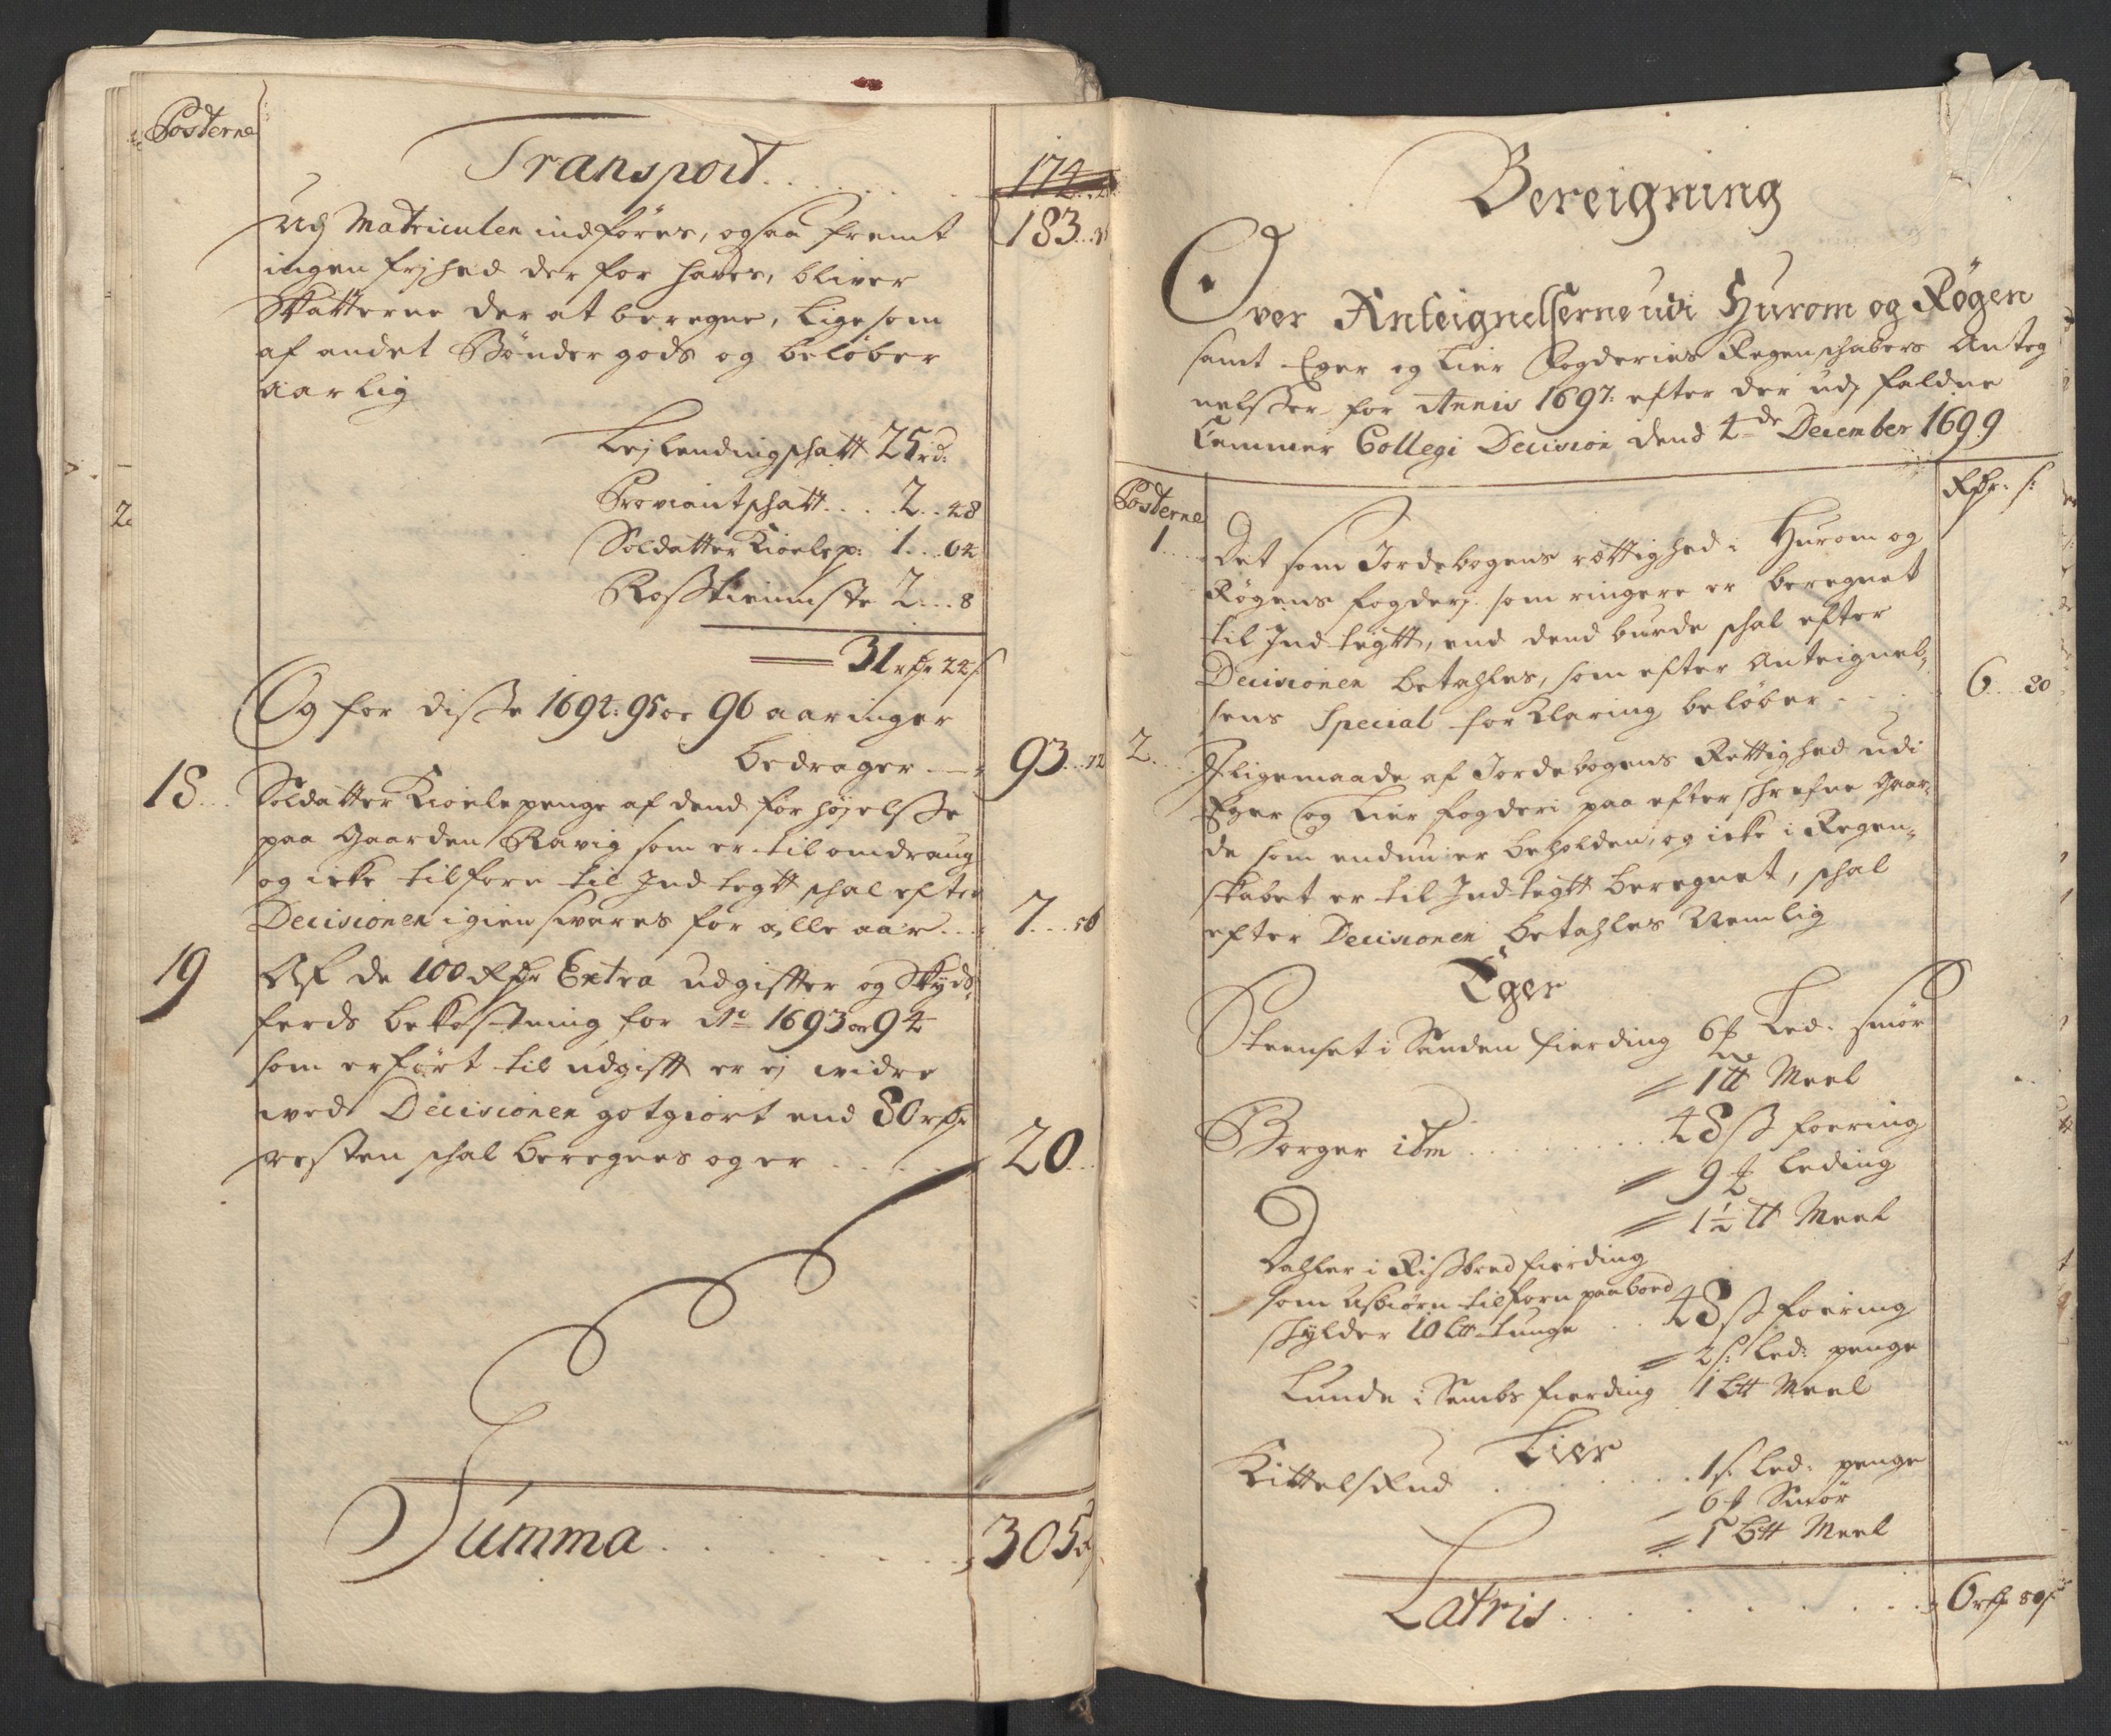 Posterne
Transport
174
Udj Matriculen indføres, ogsaa fremt
183
ingen frjhed der for haves, bliver
Skatterne der at beregne, lige som
af andet Bønder gods og beløber
aarlig
Lejlendingschatt 25 rd:
Proviantschatt . . . 2 . . 48
Soldatter Kioelsp: 1 . . . 64
Rosstienniste 2 . . . 8
31 rdr 24 s
Og for disse 1694: 95 oc 96 aaringer
bedrager 93 . . 72
18 . . Soldatter Kioele penge af dend forhøjelsse
paa Gaarden Ravig som er til omdraug
og icke tilforn til Indtegtt schal efter
Decisionen igien svares for alle aar . . . 7 . . . 56
19 Af de 100 Rdr Extra udgiffter og Skyds,
ferds bekostning for Ao 1693 oc 94
som er ført til udgifft er ej widre
wed Decisionen gotgiort end 80 rdr
resten schal beregnes og er . . . . 20 . .
Summa . . . . . . . 305
Bereignin̄g
Over Anteignelserne udi Hurom og Røgen
samt Eger og Lier Fogderies Regenschabers Anteg
nelsser for Annis 1697: efter der udj faldne
Cammer Collegi Decision dend 4de December 1699
Posterne
Rdr. s:
1 . . . Det som Jordebogens rettighed i Hurom og
Røgens fogderj som ringere er beregnet
til Indtegtt, end dend burde schal efter
Decisionen betahles, som efter Anteignel,
sens Special forklaring beløber . . . . 6 . . 80
2 . . . Ligemaade af Jordebogens Rettighed udi
Eger og Lier fogderi paa efterschrefne Gaar,
de som endnu er beholden, og icke i Regen,
skabet er til Indtegtt beregnet, schal
efter Decisionen betahles Nemlig
Eger
Steenset i Sanden fierding 6 Led: smør
1 tt Meel
Borger itm . . . . . . . 48 ß foering
9 leding
1½ tt Meel
Dahler i Rissbred fierding
som Asbiørn tilforn paaboed
skylder 10 Ltt tunge . . 48 ß foering
2 s: led: penge
Lunde i Sembs fierding 1 Ltt Meel
Lier
Kittelsrud . . . . . 1 s. led: penge
6 Smør
1 Ltt Meel
Latris . . . . . . . 6 rdr 80 s